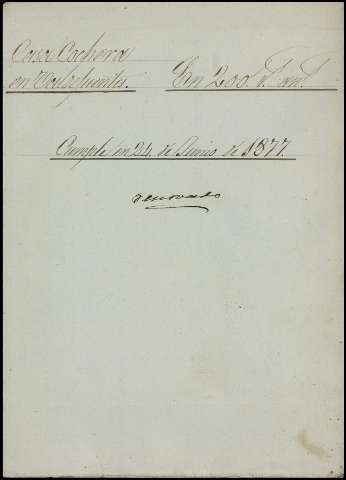 Casa Cochera
en Valdefuentes. En 200 r.s an.s
Cumple en 24 de Junio de 1877.